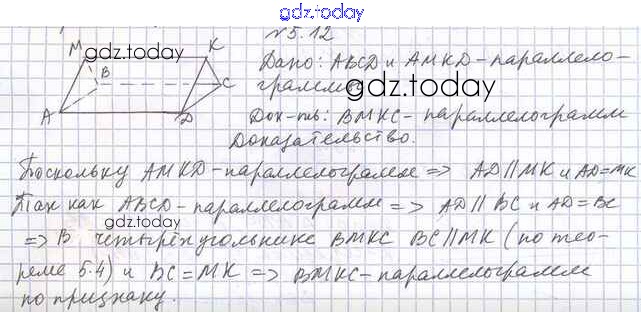 gdz.today
№5.12
M K
gdz.today
B
C
A D
Дано: ABCD и AMKD - параллело-
граммы
gdz.today
Док-ть: BMKC - параллелограмм
Доказательство.
Поскольку AMKD - параллелограмм => AD || MK и AD=MK
Так как ABCD - параллелограмм => AD || BC и AD=BC
gdz.today
=> В четырёхугольнике BMKC BC || MK (по тео-
реме 5.4) и BC = MK => BMKC - параллелограмм
по признаку.